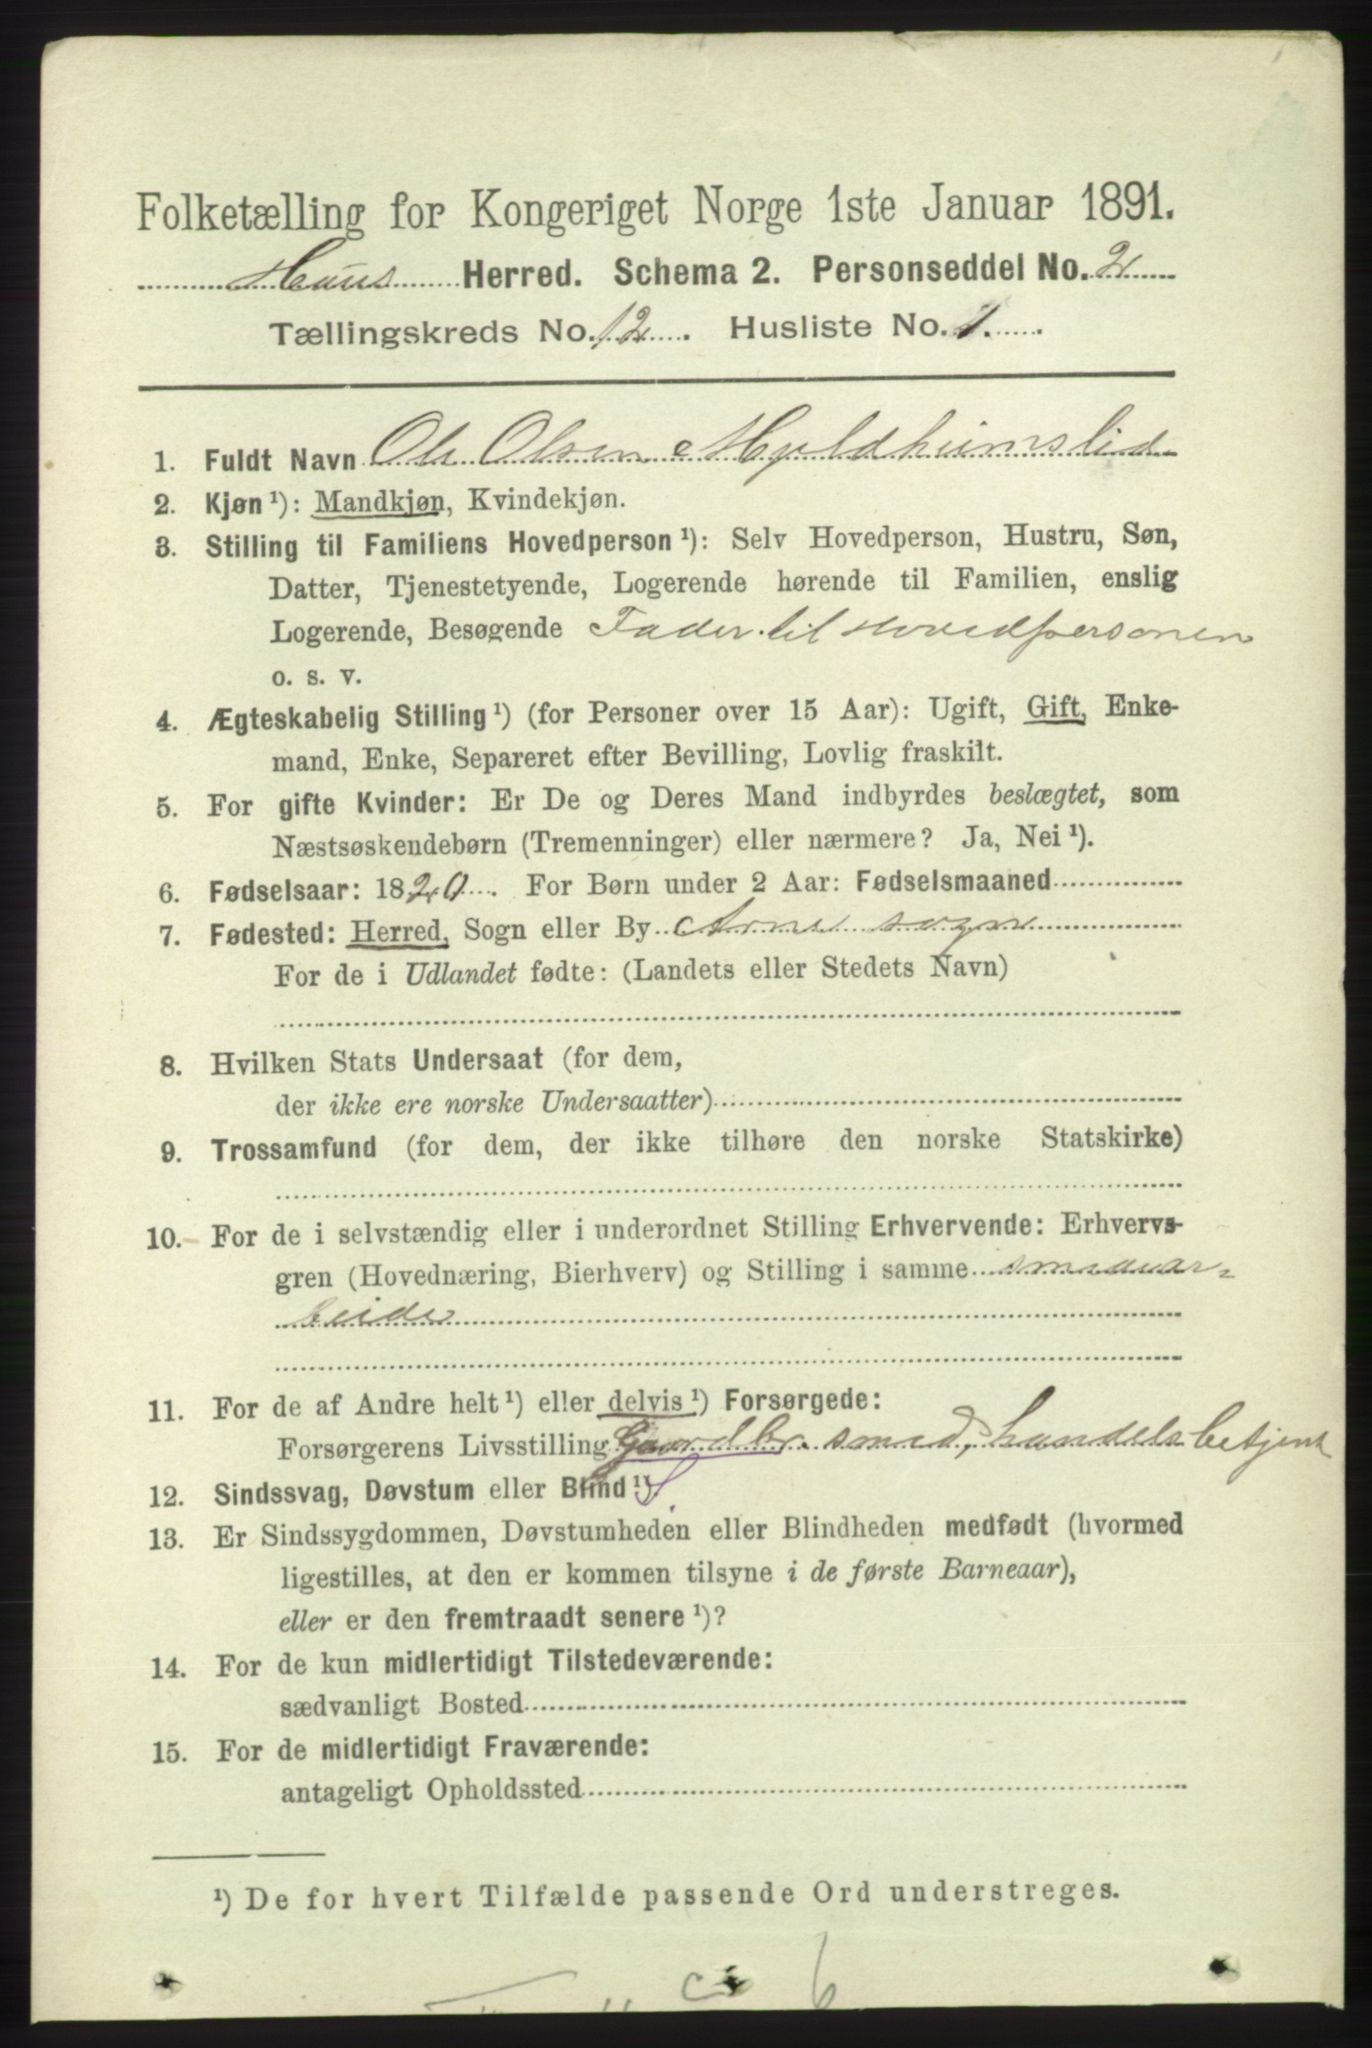 Folketælling for Kongeriget Norge 1ste Januar 1891.
Haus Herred. Schema 2. Personseddel No. 2
Tællingskreds No. 12. Husliste No. 1.
1. Fuldt Navn Ole Olsen Myldheimslid
2. Kjøn ¹): Mandkjøn, Kvindekjøn.
3. Stilling til Familiens Hovedperson ¹): Selv Hovedperson, Hustru, Søn,
Datter, Tjenestetyende, Logerende hørende til Familien, enslig
Logerende, Besøgende Fader til Hovedpersonen
o. s. v.
4. Ægteskabelig Stilling ¹) (for Personer over 15 Aar): Ugift, Gift, Enke-
mand, Enke, Separeret efter Bevilling, Lovlig fraskilt.
5. For gifte Kvinder: Er De og Deres Mand indbyrdes beslægtet, som
Næstsøskendebørn (Tremenninger) eller nærmere? Ja, Nei ¹).
6. Fødselsaar: 1820. For Børn under 2 Aar: Fødselsmaaned
7. Fødested: Herred, Sogn eller By Arne sogn
For de i Udlandet fødte: (Landets eller Stedets Navn)
8. Hvilken Stats Undersaat (for dem,
der ikke ere norske Undersaatter)
9. Trossamfund (for dem, der ikke tilhøre den norske Statskirke)
10. For de i selvstændig eller i underordnet Stilling Erhvervende: Erhvervs-
gren (Hovednæring, Bierhverv) og Stilling i samme smedear-
beide
11. For de af Andre helt ¹) eller delvis ¹) Forsørgede:
Forsørgerens Livsstilling Gaardbr. smed, handelsbetjent
12. Sindssvag, Døvstum eller Blind ¹)
13. Er Sindssygdommen, Døvstumheden eller Blindheden medfødt (hvormed
ligestilles, at den er kommen tilsyne i de første Barneaar),
eller er den fremtraadt senere ¹)?
14. For de kun midlertidigt Tilstedeværende:
sædvanligt Bosted
15. For de midlertidigt Fraværende:
antageligt Opholdssted
¹) De for hvert Tilfælde passende Ord understreges.